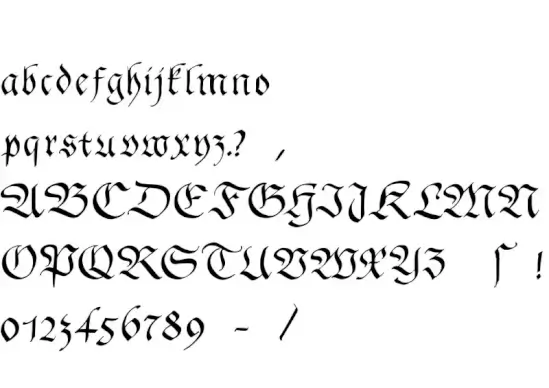 abcdefghijklmno
pqrstuvwxyz.? ,
ABCDEFGHIJKLMN
OPQRSTUVWXYZ ſ !
0123456789 - /